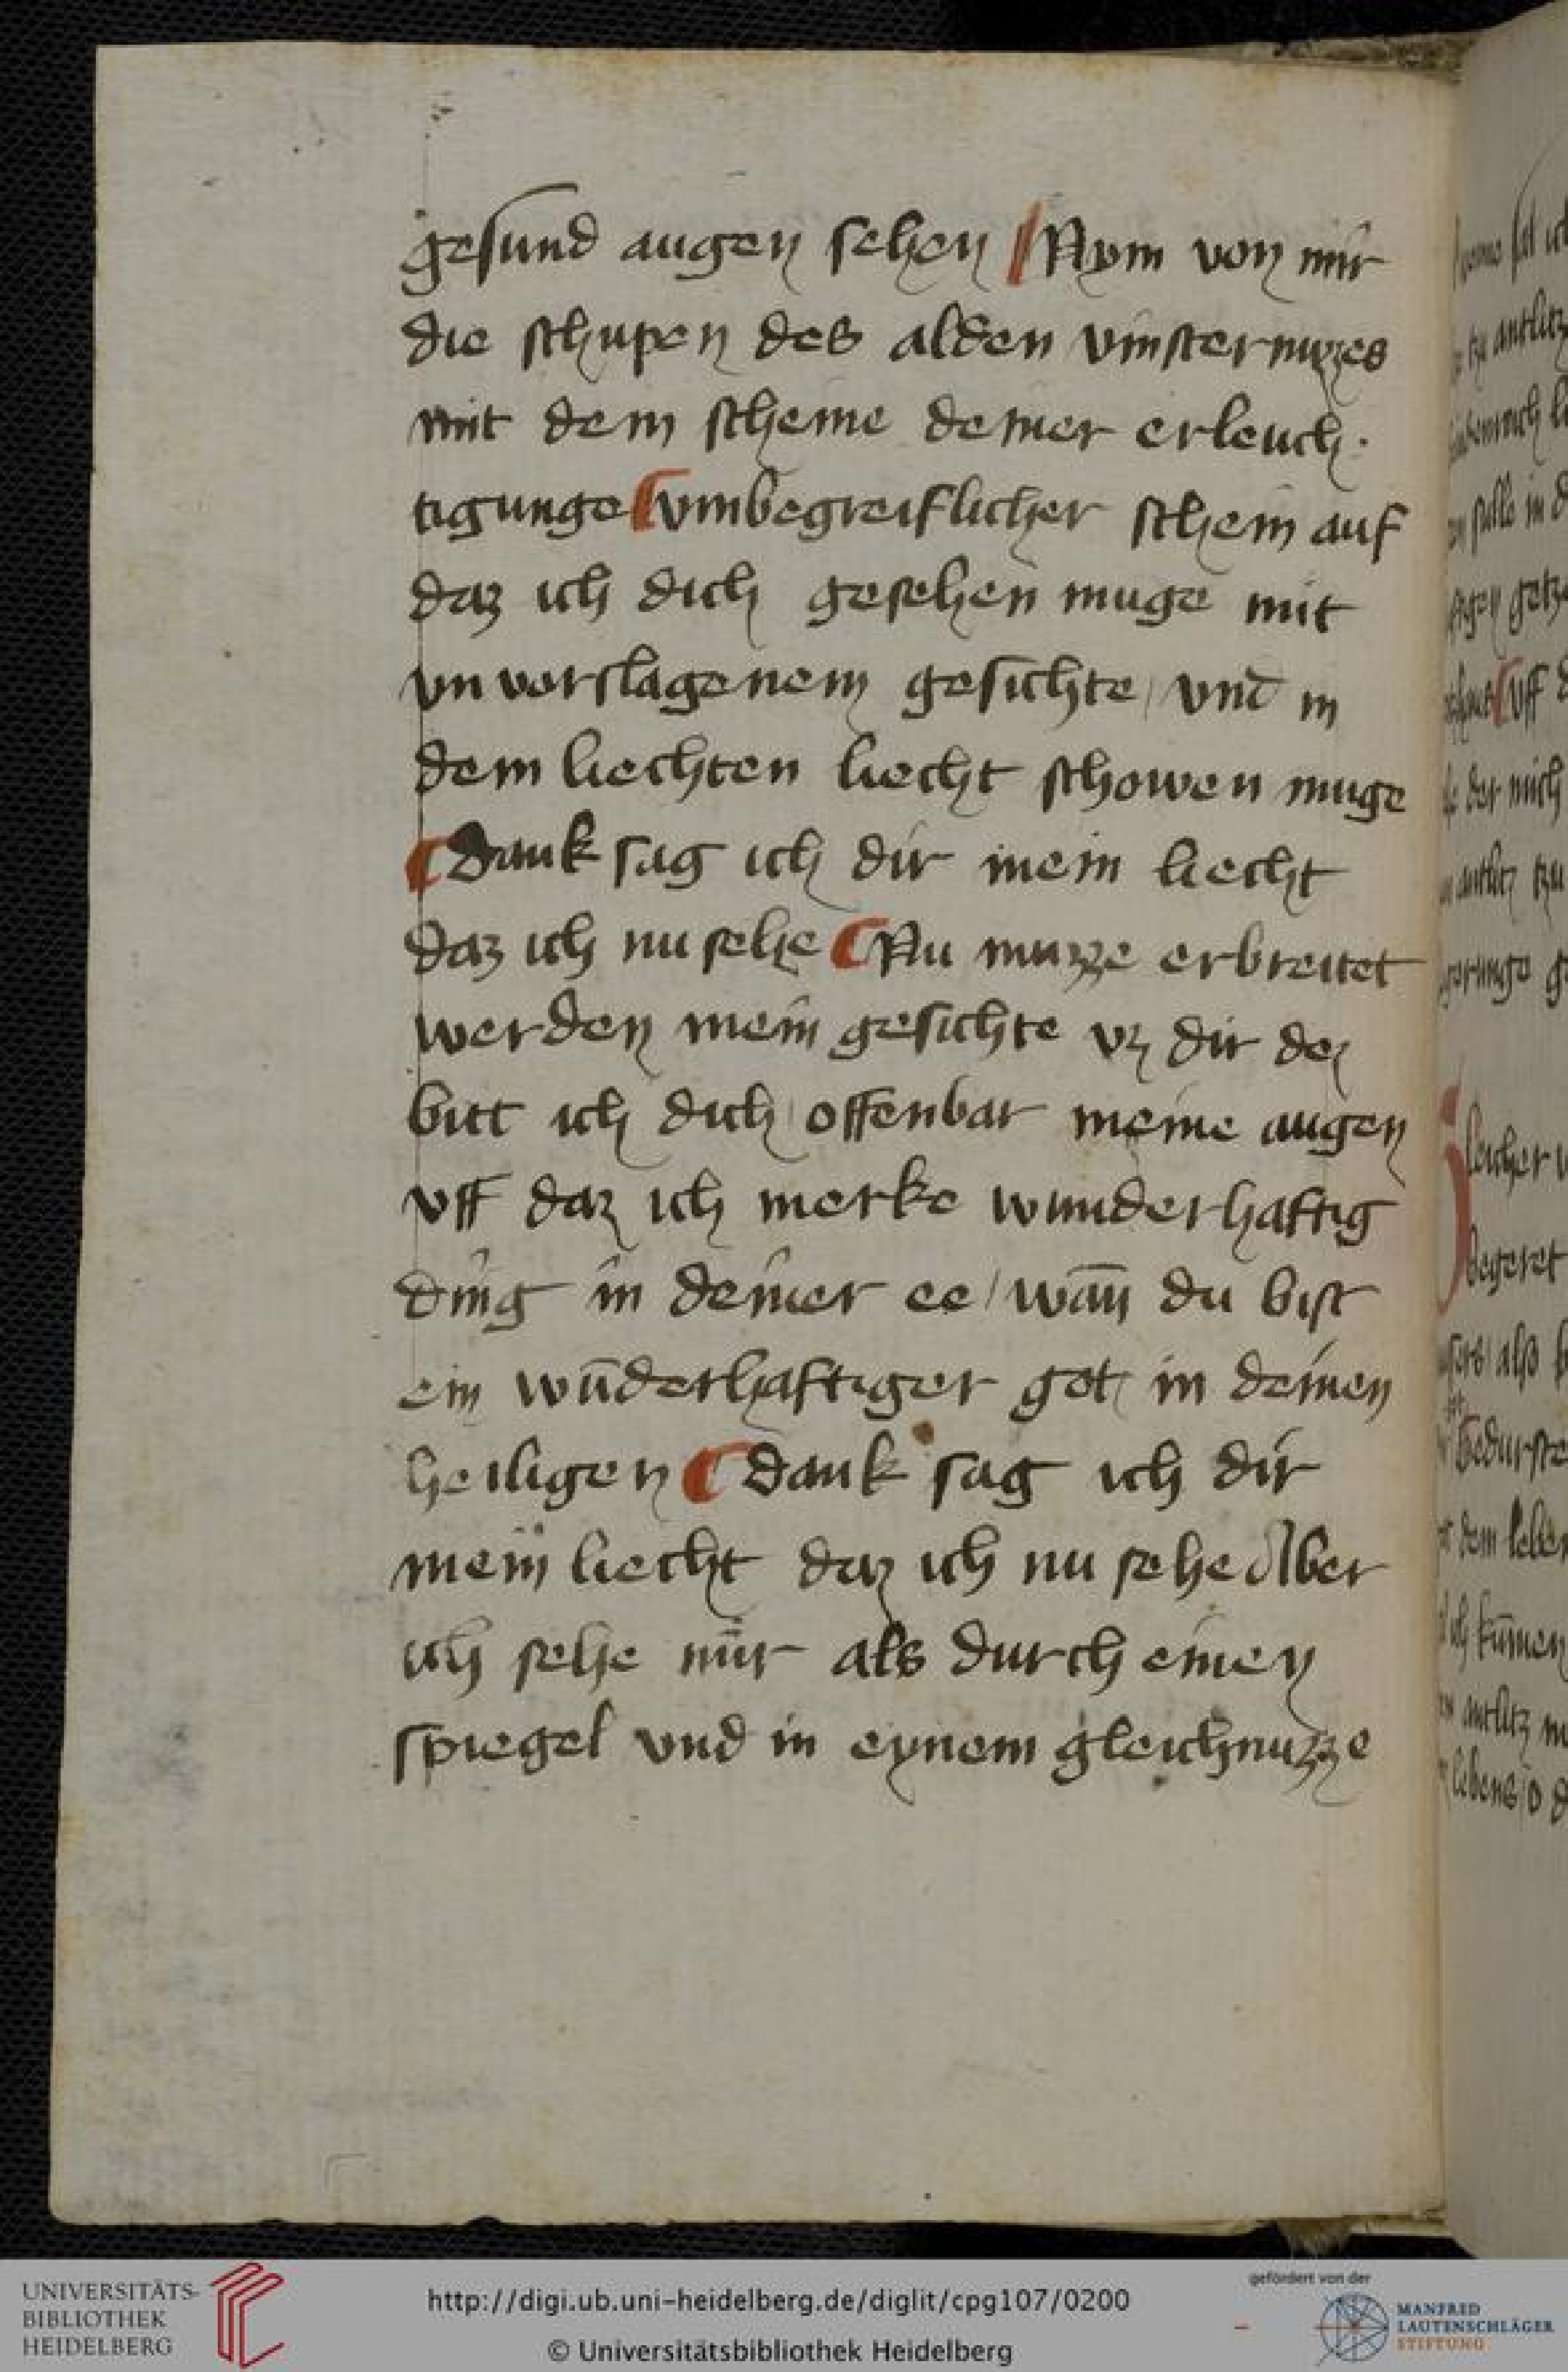 gesund augen sehen Nym von mir
die schupen des alden vinsternuzzes
mit dem scheine deiner erleuch·
tigunge vmbegreiflicher schein auf
daz ich dich gesehen muge mit
vnvorslagenem gesichte / vnd in
dem liechten liecht schowen muge
Dank sag ich dir mein liecht
daz ich nu sehe Nu muzze erbreitet
werden mein gesichte vz dir dez
bitt ich dich / offenbar meine augen
vff daz ich merke wunderhaftig
ding in deiner ee / wañ du bist
ein wūderhaftiger got / in deinen
heiligen Dank sag ich dir
mein liecht daz ich nu sehe Aber
ich sehe nur als durch einen
spiegel vnd in eynem gleichnuzze
vff
der mich
begeret
dem leben
kūmen
lebens / o
UNIVERSITÄTS-
BIBLIOTHEK
HEIDELBERG
http://digi.ub.uni-heidelberg.de/diglit/cpg107/0200
© Universitätsbibliothek Heidelberg
gefördert von der
MANFRED
LAUTENSCHLÄGER
STIFTUNG